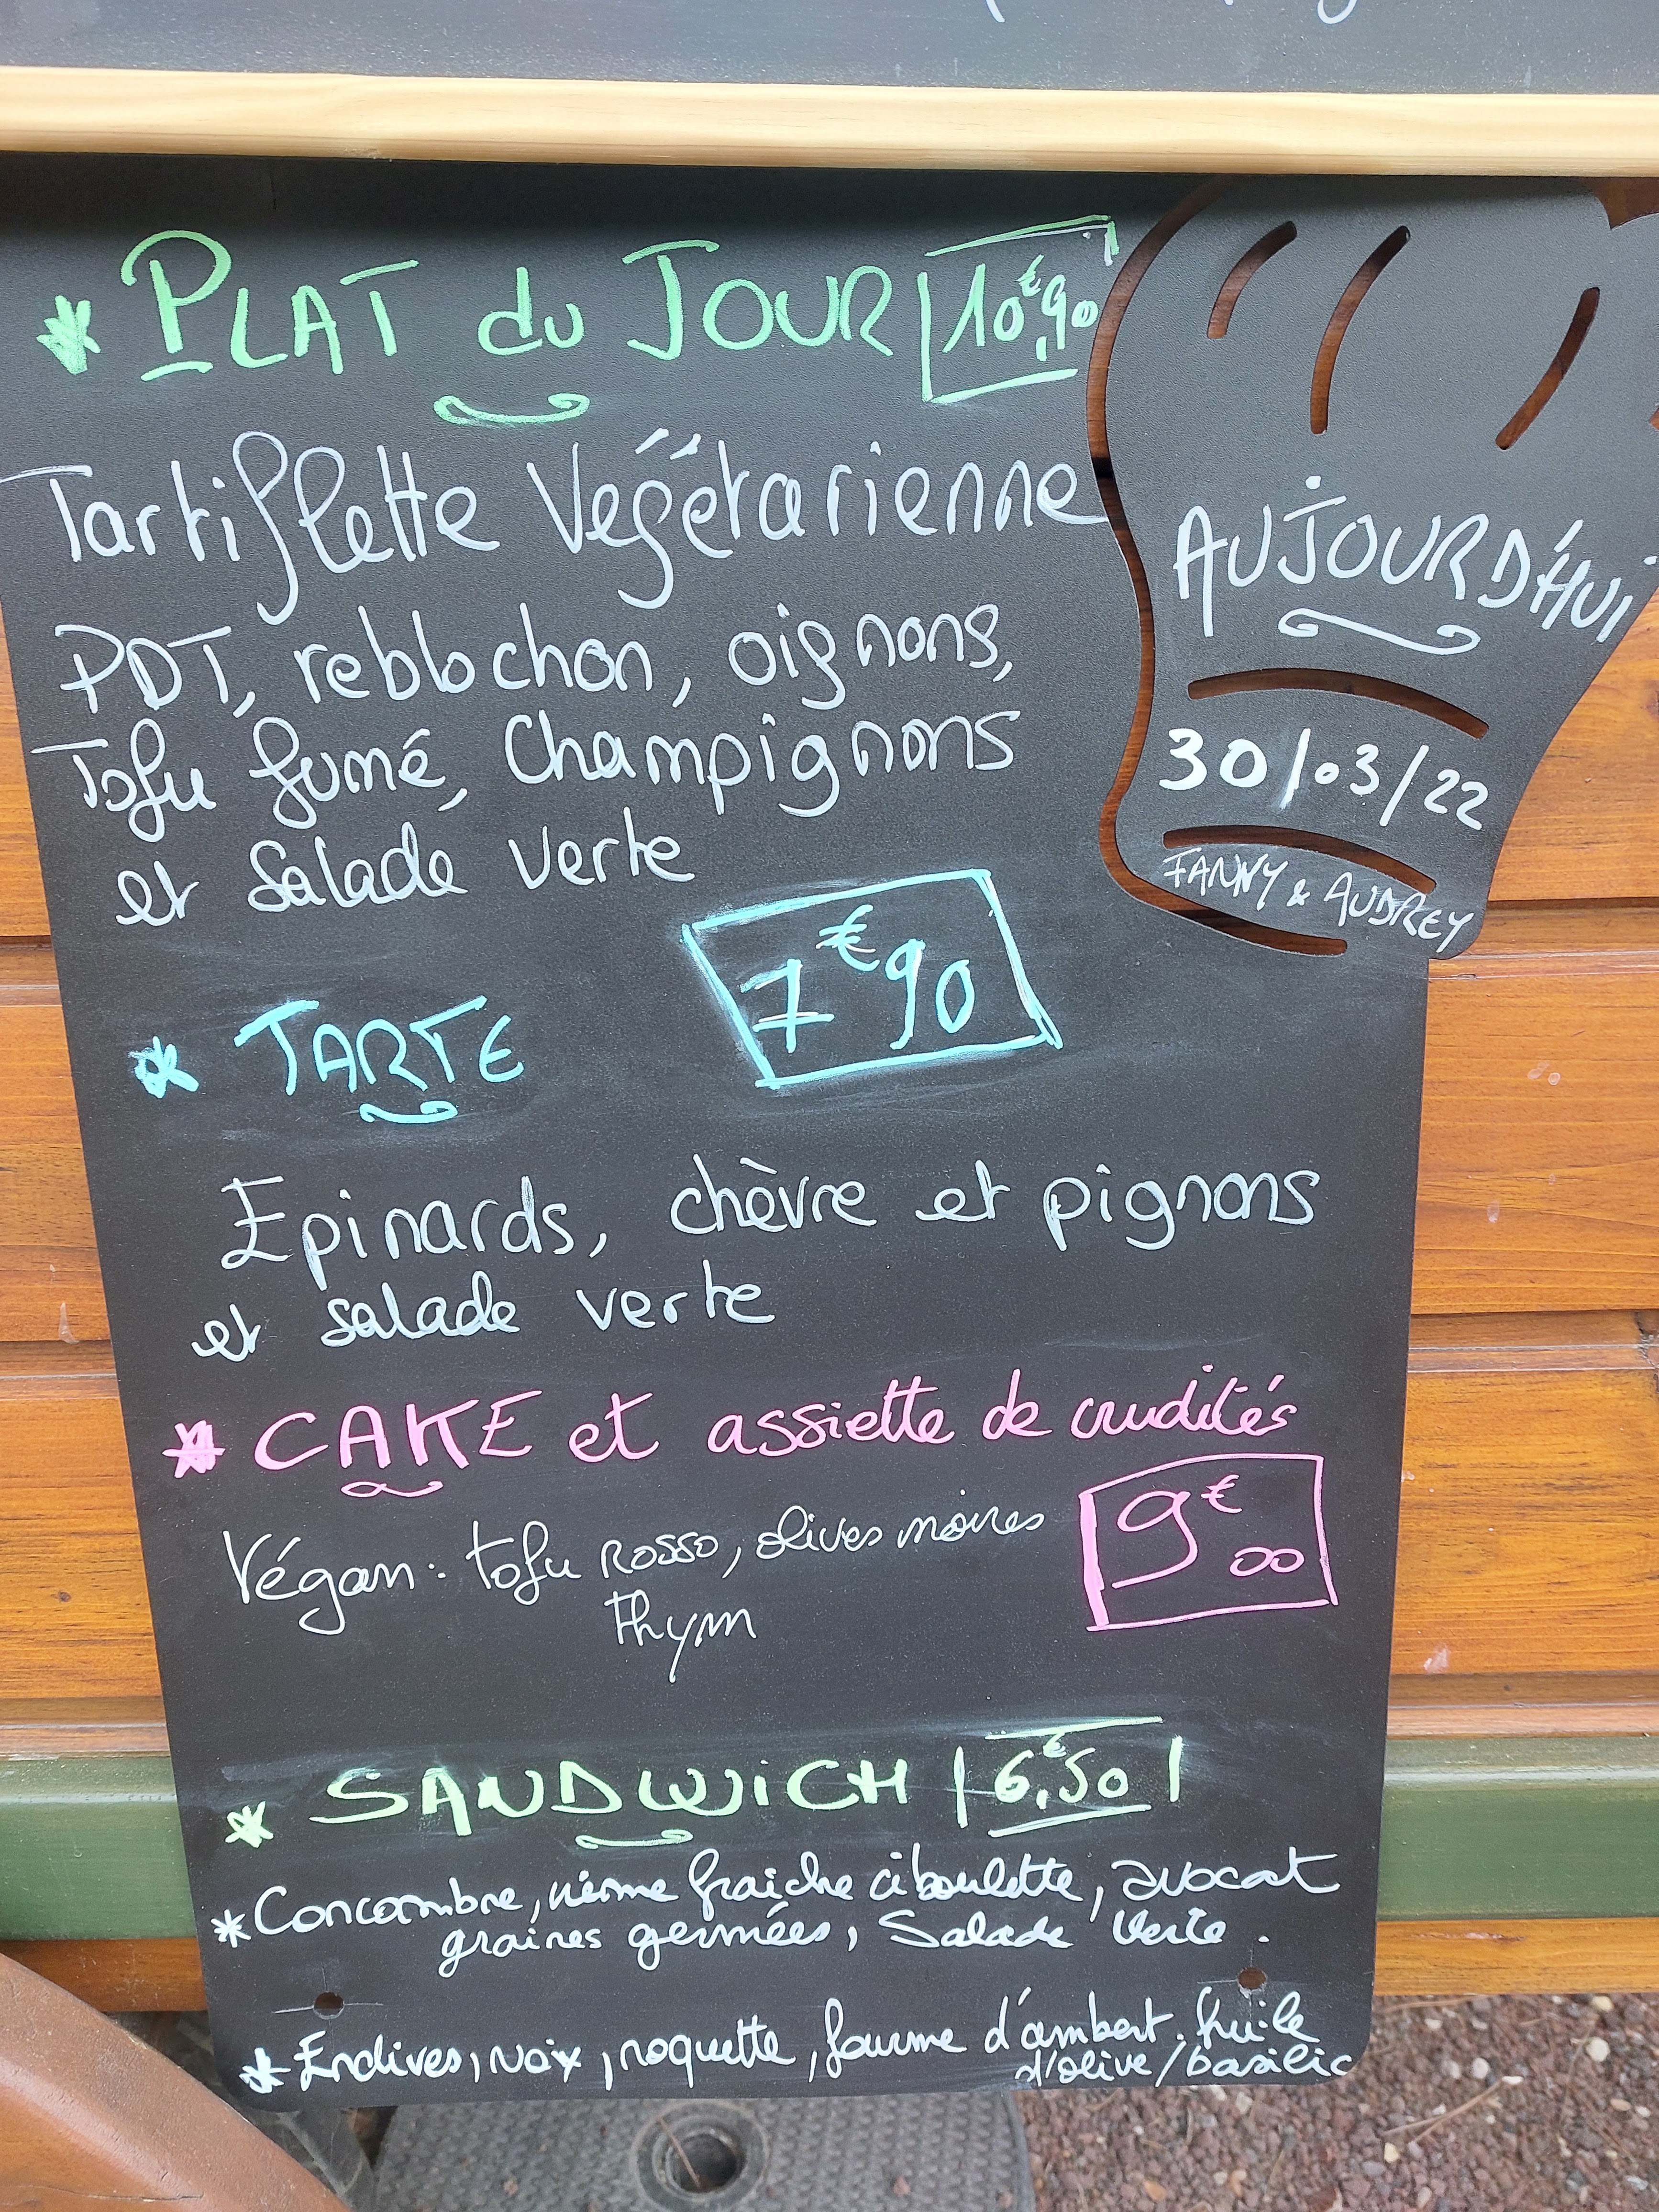 * PLAT du JOUR 10€,90
Tartiflette Végétarienne
PDT, reblochon, oignons,
Tofu fumé, Champignons
et salade verte
AUJOURD'HUI
30/03/22
FANNY & AUDREY
* TARTE 7€90
Epinards, chèvre et pignons
et salade verte
* CAKE et assiette de crudités
9€00
Végan: tofu rosso, olives noires
thym
* SANDWICH 6€,50
* Concombre, crème fraiche ciboulette, avocat
graines germées, Salade verte.
* Endives, noix, roquette, fourme d'ambert. huile
d'olive/basilic